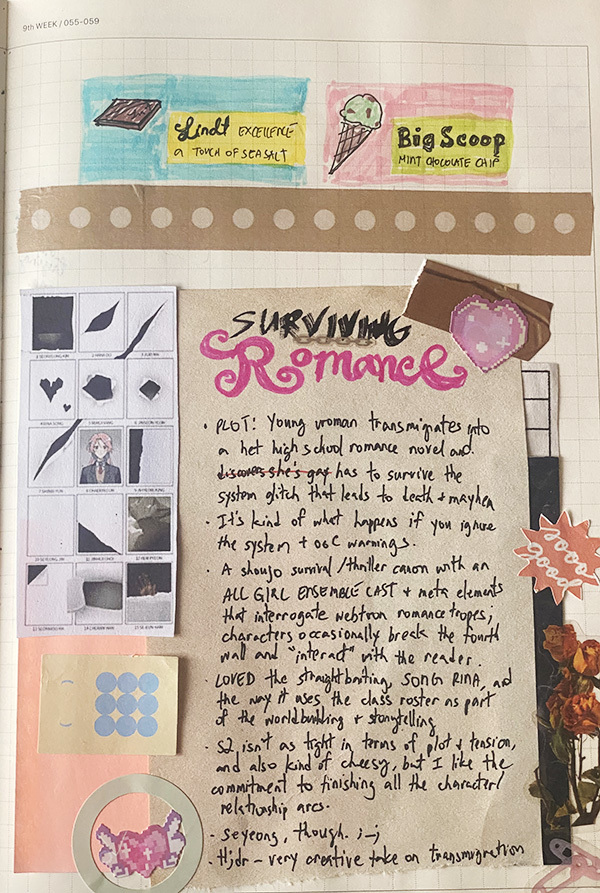 9th WEEK / 055-059
Lindt EXCELLENCE
a TOUCH OF SEA SALT
Big Scoop
MINT CHOCOLATE CHIP
SURVIVING
Romance
• PLOT: Young woman transmigrates into
a het high school romance novel and
discovers she's gay has to survive the
system glitch that leads to death + mayhem
• It's kind of what happens if you ignore
the system + OOC warnings.
• A shoujo survival/thriller canon with an
ALL GIRL ENSEMBLE CAST + meta elements
that interrogate webtoon romance tropes;
characters occasionally break the fourth
wall and "interact" with the reader.
• LOVED the straightbaiting, SONG RINA, and
the way it uses the class roster as part
of the worldbuilding + storytelling
• S2 isn't as tight in terms of plot + tension,
and also kind of cheesy, but I like the
commitment to finishing all the character/
relationship arcs.
• Seyeong, though. ;_;
• Hjdr – very creative take on transmigration
sooo
good